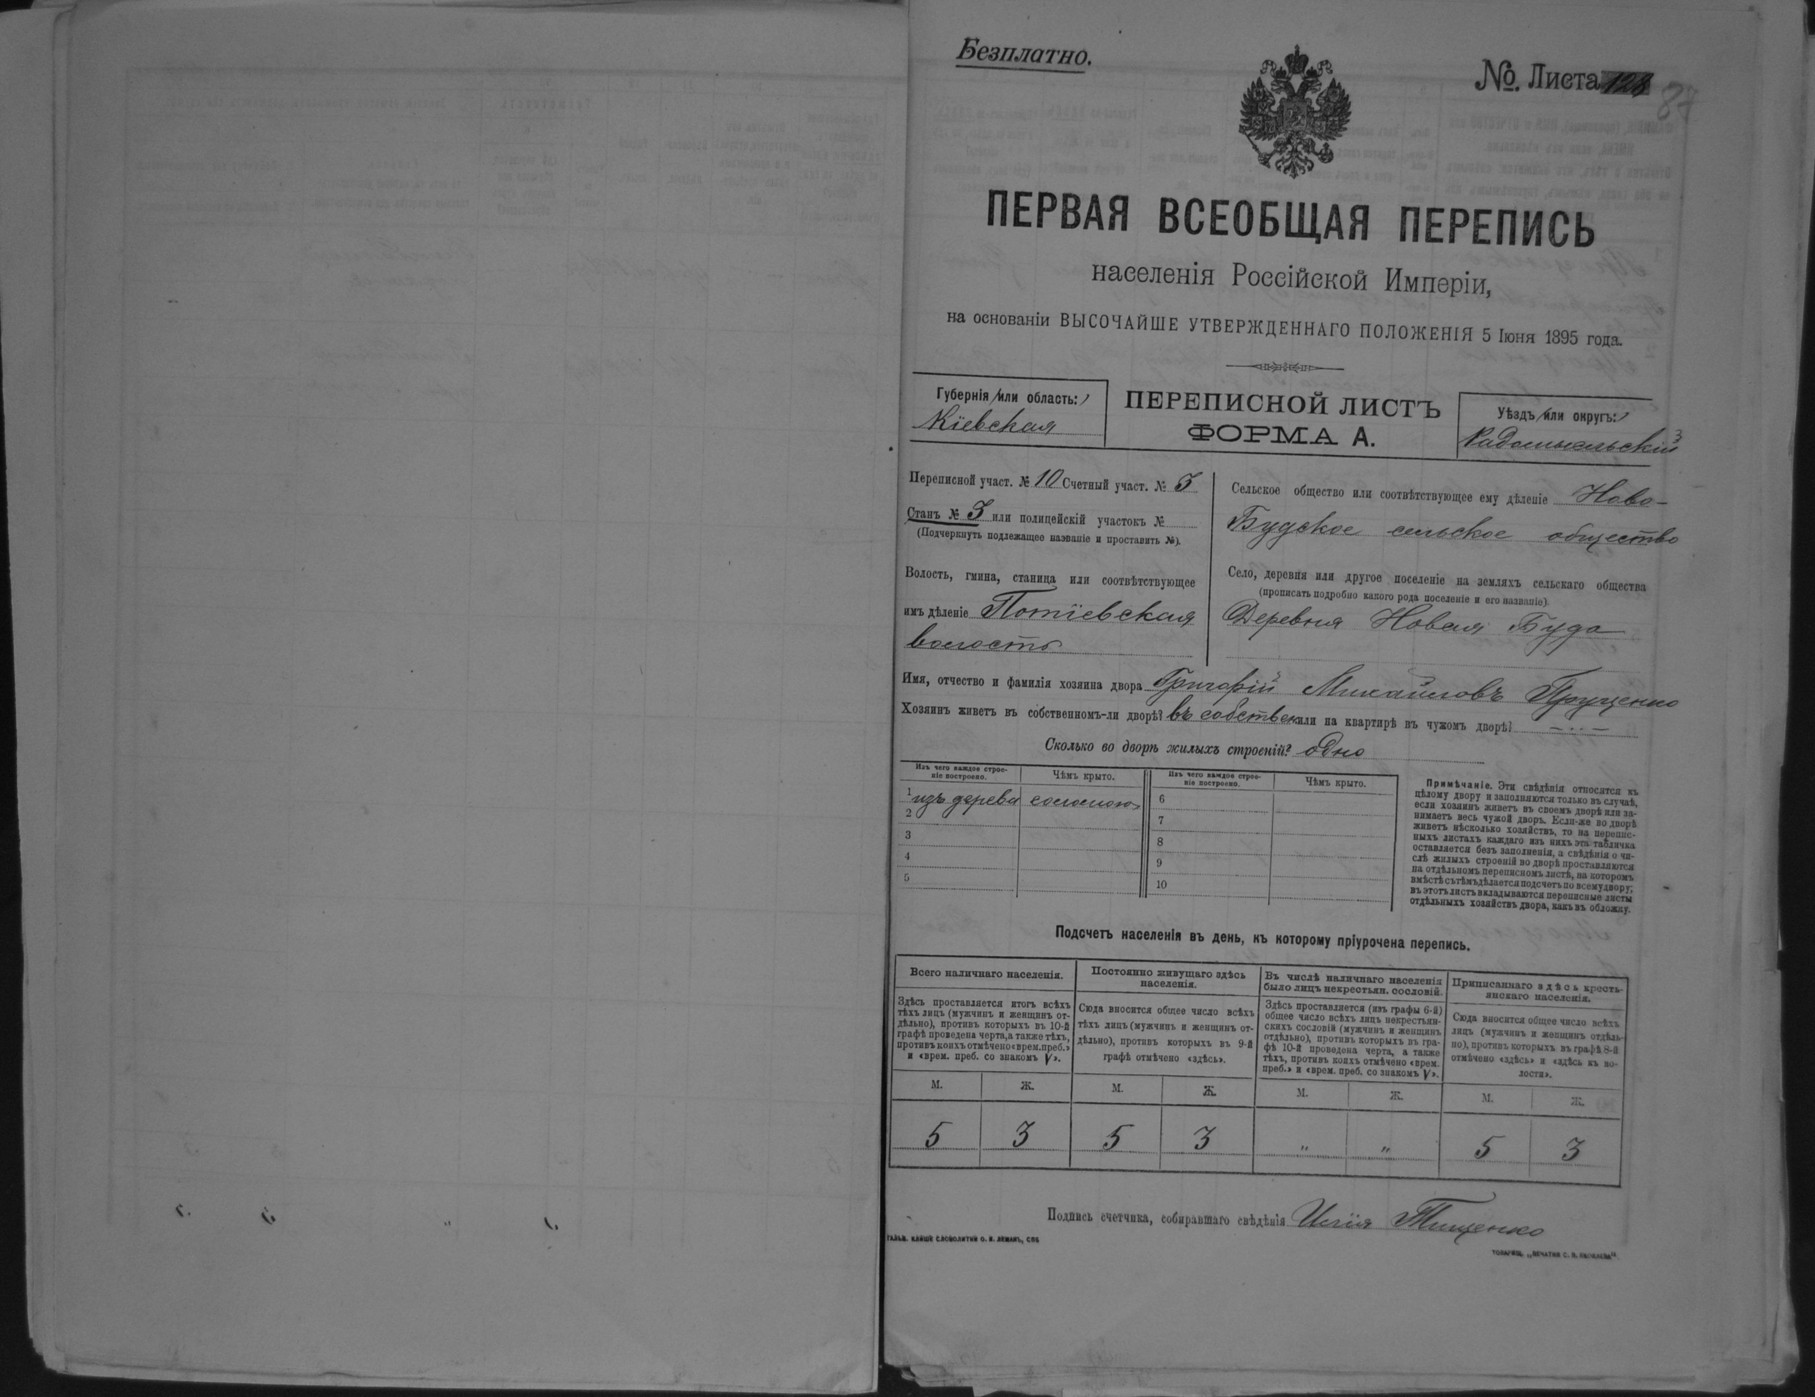 Безплатно.
№. Листа 128
87
ПЕРВАЯ ВСЕОБЩАЯ ПЕРЕПИСЬ
населенія Россійской Имперіи,
на основаніи ВЫСОЧАЙШЕ УТВЕРЖДЕННАГО ПОЛОЖЕНІЯ 5 Іюня 1895 года.
Губернія /или область:/
Кіевская
ПЕРЕПИСНОЙ ЛИСТЪ
ФОРМА А.
Уѣздъ /или округъ:/
Радомысльскій
Переписной участ. № 10 Счетный участ. № 3
Станъ № 3 или полицейскій участокъ №
(Подчеркнуть подлежащее названіе и проставить №).
Волость, гмина, станица или соотвѣтствующее
имъ дѣленіе Потіевская
волость
Сельское общество или соотвѣтствующее ему дѣленіе Ново-
Будское сельское общество
Село, деревня или другое поселеніе на земляхъ сельскаго общества
(прописать подробно какого рода поселеніе и его названіе).
Деревня Новая Буда
Имя, отчество и фамилія хозяина двора Григорій Михайловъ Прущенко
Хозяинъ живетъ въ собственномъ-ли дворѣ? въ собствен или на квартирѣ въ чужомъ дворѣ?
Сколько во дворѣ жилыхъ строеній? одно
Изъ чего каждое строе-
ніе построено.
Чѣмъ крыто.
Изъ чего каждое строе-
ніе построено.
Чѣмъ крыто.
1 изъ дерева соломою
2
3
4
5
6
7
8
9
10
Примѣчаніе. Эти свѣдѣнія относятся къ
цѣлому двору и заполняются только въ случаѣ,
если хозяинъ живетъ въ своемъ дворѣ или за-
нимаетъ весь чужой дворъ. Если-же во дворѣ
живетъ нѣсколько хозяйствъ, то на перепис-
ныхъ листахъ каждаго изъ нихъ эта табличка
оставляется безъ заполненія, а свѣдѣнія о чи-
слѣ жилыхъ строеній во дворѣ проставляются
на отдѣльномъ переписномъ листѣ, на которомъ
вмѣстѣ съ тѣмъ дѣлается подсчетъ по всему двору;
въ этотъ листъ вкладываются переписные листы
отдѣльныхъ хозяйствъ двора, какъ въ обложку.
Подсчетъ населенія въ день, къ которому пріурочена перепись.
Всего наличнаго населенія.
Здѣсь проставляется итогъ всѣхъ
тѣхъ лицъ (мужчинъ и женщинъ от-
дѣльно), противъ которыхъ въ 10-й
графѣ проведена черта, а также тѣхъ,
противъ коихъ отмѣчено «врем. преб.»
и «врем. преб. со знакомъ V».
Постоянно живущаго здѣсь
населенія.
Сюда вносится общее число всѣхъ
тѣхъ лицъ (мужчинъ и женщинъ от-
дѣльно), противъ которыхъ въ 9-й
графѣ отмѣчено «здѣсь».
Въ числѣ наличнаго населенія
было лицъ некрестьян. сословій.
Здѣсь проставляется (изъ графы 6-й)
общее число всѣхъ лицъ некрестьян-
скихъ сословій (мужчинъ и женщинъ
отдѣльно), противъ которыхъ въ гра-
фѣ 10-й проведена черта, а также
тѣхъ, противъ коихъ отмѣчено «врем.
преб.» и «врем. преб. со знакомъ V».
Приписаннаго здѣсь кресть-
янскаго населенія.
Сюда вносится общее число всѣхъ
лицъ (мужчинъ и женщинъ отдѣль-
но), противъ которыхъ въ графѣ 8-й
отмѣчено «здѣсь» и «здѣсь къ во-
лости».
М. Ж. М. Ж. М. Ж. М. Ж.
5 3 5 3 " " 5 3
Подпись счетчика, собиравшаго свѣдѣнія Илія Тищенко
ГАЛЬВ. КЛИШЕ СЛОВОЛИТНИ О. И. ЛЕМАНЪ, СПБ